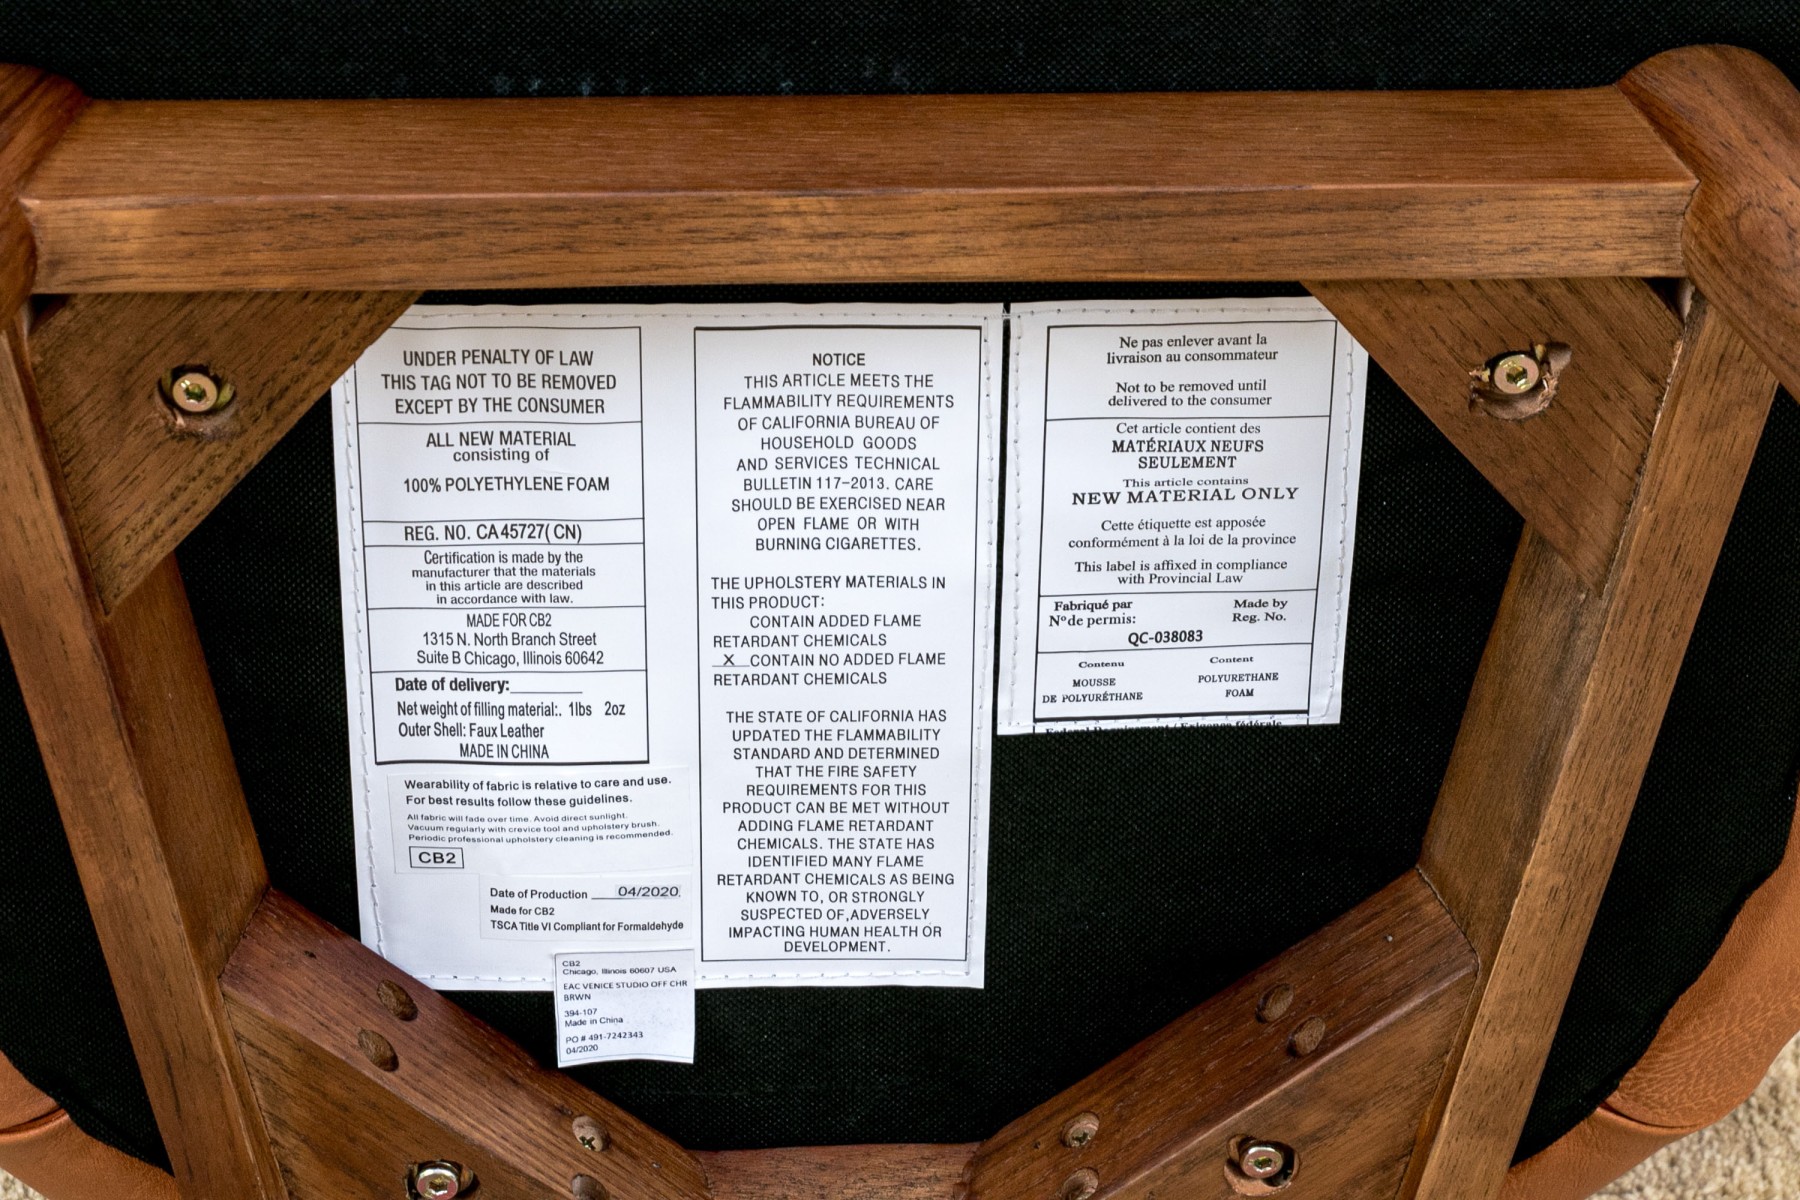 UNDER PENALTY OF LAW
THIS TAG NOT TO BE REMOVED
EXCEPT BY THE CONSUMER
ALL NEW MATERIAL
consisting of
100% POLYETHYLENE FOAM
REG. NO. CA45727( CN)
Certification is made by the
manufacturer that the materials
in this article are described
in accordance with law.
MADE FOR CB2
1315 N. North Branch Street
Suite B Chicago, Illinois 60642
Date of delivery:________
Net weight of filling material:. 1lbs 2oz
Outer Shell: Faux Leather
MADE IN CHINA
Wearability of fabric is relative to care and use.
For best results follow these guidelines.
All fabric will fade over time. Avoid direct sunlight.
Vacuum regularly with crevice tool and upholstery brush.
Periodic professional upholstery cleaning is recommended.
CB2
Date of Production ____04/2020.
Made for CB2
TSCA Title VI Compliant for Formaldehyde
CB2
Chicago, Illinois 60607 USA
EAC VENICE STUDIO OFF CHR
BRWN
394-107
Made in China
PO # 491-7242343
04/2020
NOTICE
THIS ARTICLE MEETS THE
FLAMMABILITY REQUIREMENTS
OF CALIFORNIA BUREAU OF
HOUSEHOLD GOODS
AND SERVICES TECHNICAL
BULLETIN 117-2013. CARE
SHOULD BE EXERCISED NEAR
OPEN FLAME OR WITH
BURNING CIGARETTES.
THE UPHOLSTERY MATERIALS IN
THIS PRODUCT:
CONTAIN ADDED FLAME
RETARDANT CHEMICALS
_X_CONTAIN NO ADDED FLAME
RETARDANT CHEMICALS
THE STATE OF CALIFORNIA HAS
UPDATED THE FLAMMABILITY
STANDARD AND DETERMINED
THAT THE FIRE SAFETY
REQUIREMENTS FOR THIS
PRODUCT CAN BE MET WITHOUT
ADDING FLAME RETARDANT
CHEMICALS. THE STATE HAS
IDENTIFIED MANY FLAME
RETARDANT CHEMICALS AS BEING
KNOWN TO, OR STRONGLY
SUSPECTED OF,ADVERSELY
IMPACTING HUMAN HEALTH OR
DEVELOPMENT.
Ne pas enlever avant la
livraison au consommateur
Not to be removed until
delivered to the consumer
Cet article contient des
MATÉRIAUX NEUFS
SEULEMENT
This article contains
NEW MATERIAL ONLY
Cette étiquette est apposée
conformément à la loi de la province
This label is affixed in compliance
with Provincial Law
Fabriqué par Made by
Nº de permis: Reg. No.
QC-038083
Contenu Content
MOUSSE POLYURETHANE
DE POLYURÉTHANE FOAM
Federal Requirement / Exigence fédérale